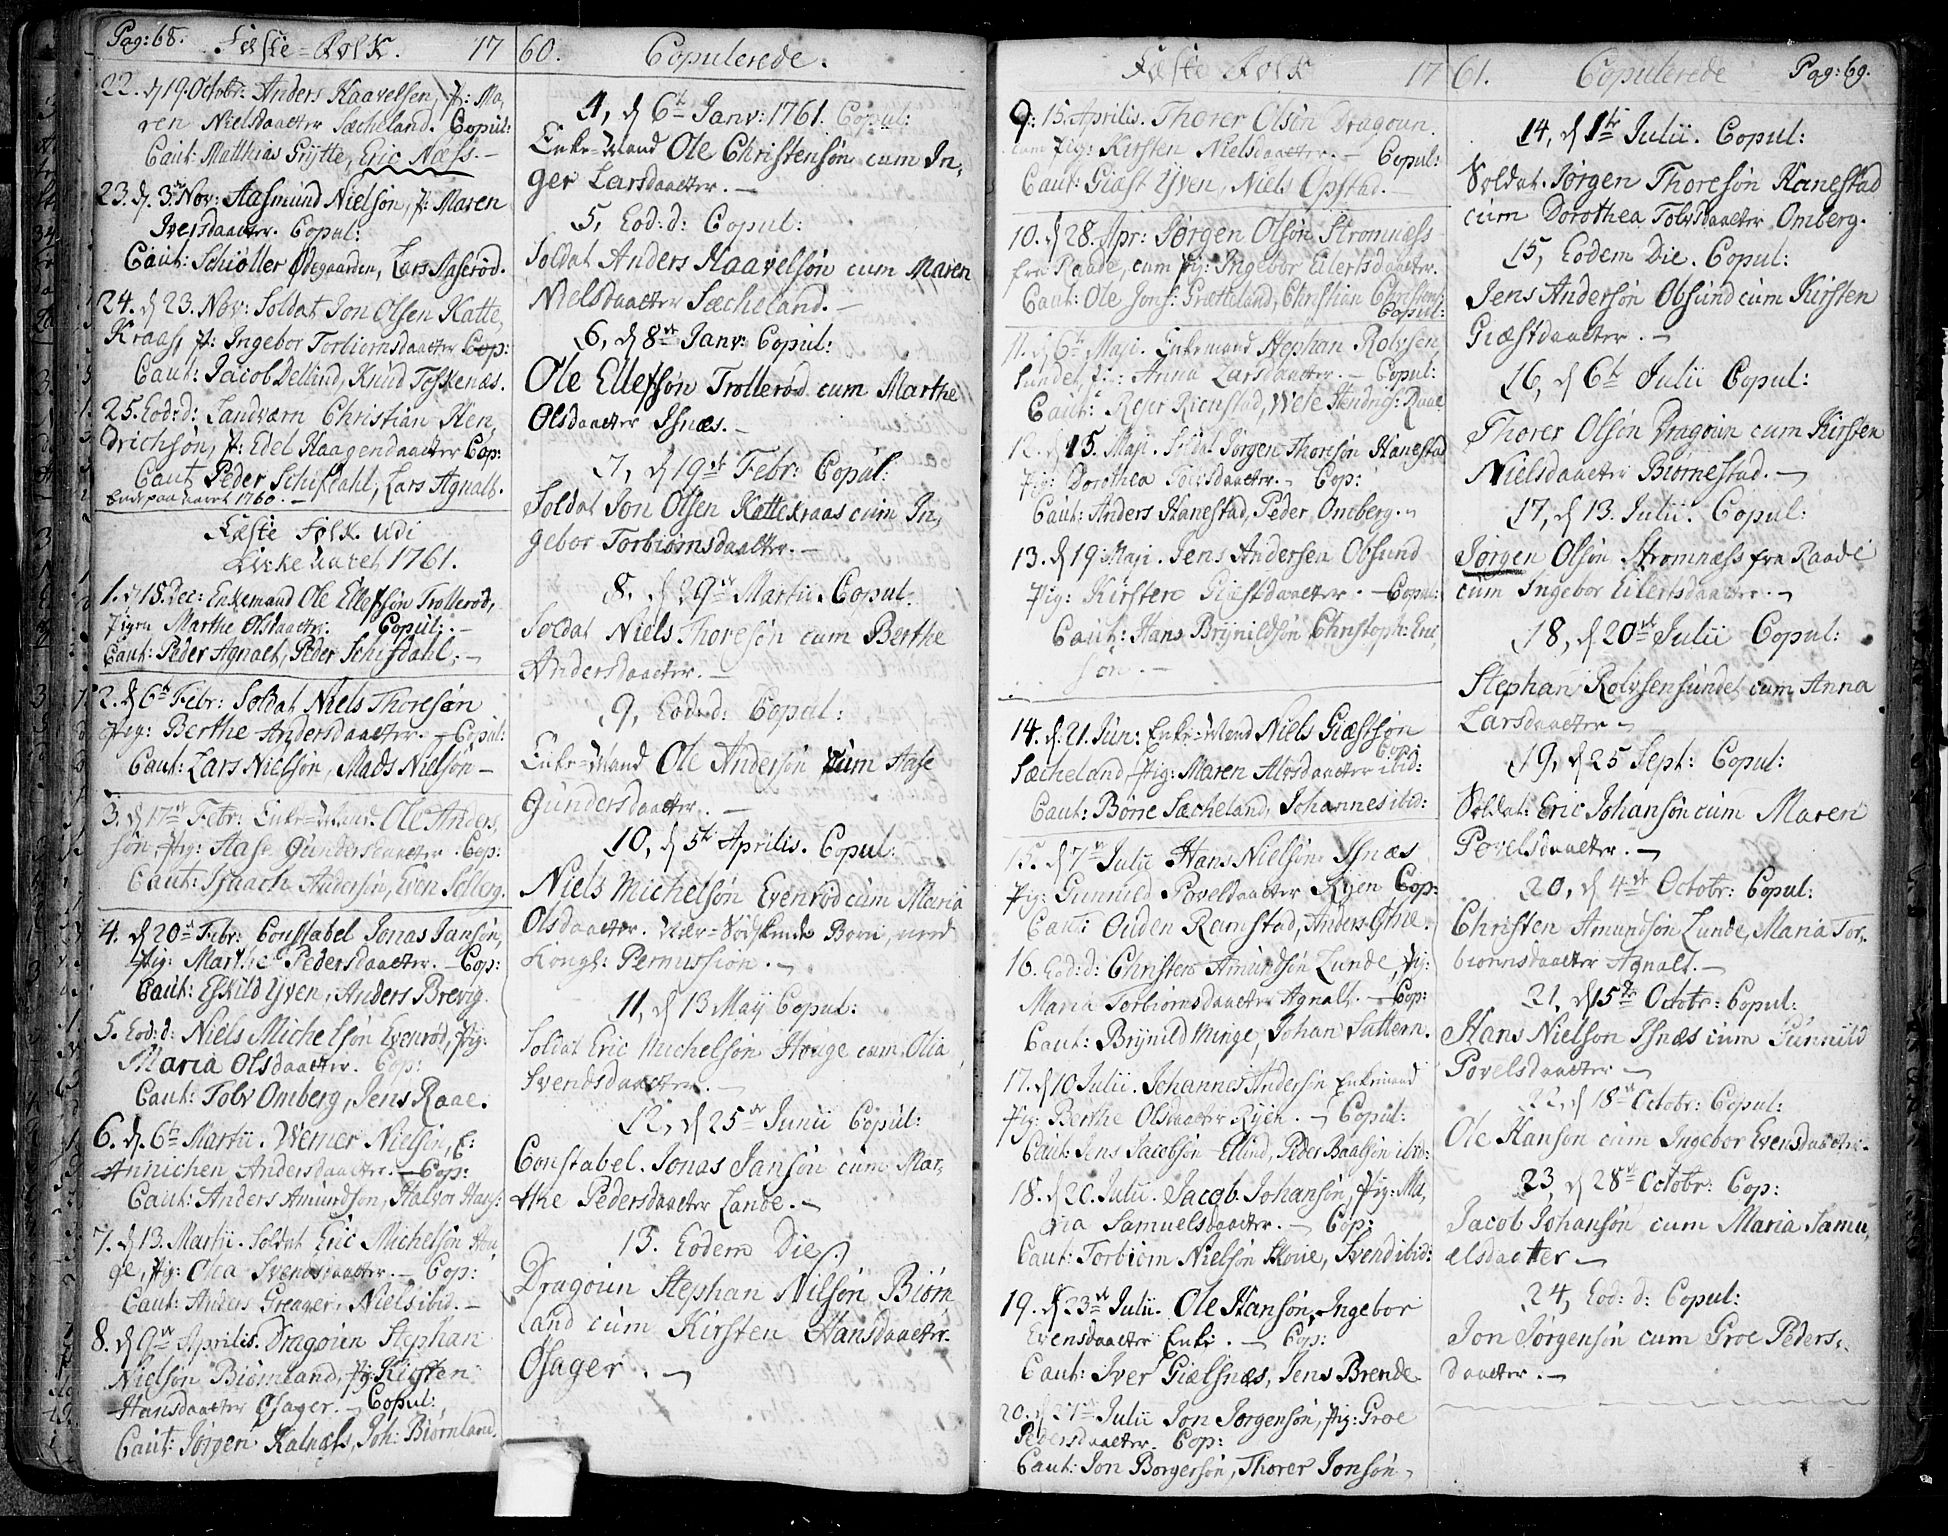 Pag: 68. Fæste=Folk. 17
22. d 19. Octobr: Anders Haavelsen, P: Ma,
ren Nielsdaatter Sæcheland. Copul:
Caut: Matthias Grÿtte, Eric Næss.
23. d. 3 Nov: Aasmund Nielsøn, P: Maren
Iversdaatter. Copul:
Caut: Schiøller Ødegaarden, Lars Aaserød.
24. d 23. Nov: Soldat Jon Olsen Katte,
Kraas, P: Ingebor Torbiørnsdaatter Cop:
Caut: Jacob Dellind, Knud Toskenæs.
25. Eod: d: Landværn Christian Hen,
drichsøn, P: Edel Haagendaatter Cop:
Caut Peder Schifdahl, Lars Agnalt.
Ende paa aaret 1760.
Fæste Folk udi
Kirke Aaret 1761.
1. d 15. Dec: Enkemand Ole Ellefsøn Trollerød,
Pigen Marthe Olsdaatter. Copul:
Caut: Peder Agnalt, Peder Schifdahl.
2. d 6te Febr: Soldat Niels Thoresøn
Pig: Berthe Andersdaatter. Copul:
Caut: Lars Nielsøn, Mads Nielsøn
3. d 17de Febr: Enke=Mand. Ole Anders,
søn Pig: Aase Gundersdaatter. Cop:
Caut: Isaach Andersøn, Even Solberg.
4. d 20de Febr: Constabel Jonas Jansøn,
Pig: Marthe Pedersdaatter. Cop:
Caut: Eskild Yven, Anders Brevig.
5. Eod: d: Niels Michelsøn Evenrød, Pig:
Maria Olsdaatter. Cop:
Caut: Tolv Omberg, Jens Raae.
6. d. 6te Martii. Werner Nielsøn, E:
Annichen Andersdaatter. Cop:
Caut: Anders Amundsøn, Halvor
7. d 13. Martii. Soldat Eric Michelsøn Hou
ge, Pig: Olia Svendsdaatter. Cop:
Caut: Anders Greager, Niels ibid.
8. d 9de Aprilis. Dragoun Stephan
Nielsøn Biørnland, Pig: Kirsten
Hansdaatter Øsager. Copul:
Caut: Jørgen Kalnæss, Joh: Biørnland.
60. Copulerede.
4, d 6te Janv: 1761. Copul:
Enke=Mand Ole Christensøn cum In,
ger Larsdaatter.
5, Eod: d: Copul:
Soldat Anders Haavelsøn cum Maren
Nielsdaatter Sæcheland.
6, d 8de Janv: Copul:
Ole Ellefsøn Trollerød cum Marthe
Olsdaatter Isnæs.
7, d 19de Febr: Copul:
Soldat Jon Olsen Kattekraas cum In,
gebor Torbiørnsdaatter.
8. d 29de Martii. Copul:
Soldat Niels Thoresøn cum Berthe
Andersdaatter.
9, Eod: d: Copul:
Enke=Mand Ole Andersøn cum Aase
Gundersdaatter.
10, d 5te Aprilis. Copul:
Niels Michelsøn Evenrød cum Maria
Olsdaatter. Nær=Sødskende Børn, med
Kongl: Permission.
11, d 13 Maÿ Copul:
Soldat Eric Michelsøn Houge cum Olia
Svendsdaatter.
12, d 25de Junii Copul:
Constabel. Jonas Jansøn cum Mar,
the Pedersdaatter Lande.
13. Eodem Die.
Dragoun Stephan Nilsøn Biørn
land cum Kirsten Hansdaatter
Øsager.
Fæste Folk 17
9. 15. Aprilis. Thorer Olsøn Dragoun.
cum Pig: Kirsten Nielsdaatter. Copul:
Caut: Giøst Yven, Niels Opstad.
10. d 28. Apr: Jørgen Olsøn Stromnæss
fra Raade, cum Pig: Ingebor Eilertsdaatter.
Caut: Ole Jons: Grætteland, Christian Christens:
Copul:
11. d 6te Maji. Enkemand Stephan Rolvsen
sundet Pig: Anna Larsdaatter. Copul:
Caut: Rejer Rienstad, Wese Hendrigs: Raae
12. d 15. Maji. Soldat Jørgen Thoresøn Hanestad
Pig: Dorothea Tolvsdaatter. Cop:
Caut: Anders Hanestad, Peder Omberg.
13. d 19 Maji. Jens Andersen Obsund
Pig: Kirsten Giæstdaatter. Copul:
Caut: Hans Brynildsøn Christoph: Eric,
søn.
14. d. 21. Jun: Enke=Mand Niels Giæstsøn
Cop:
Sæcheland, Pig: Maren Alvsdaatter ibid:
Caut: Børre Sæcheland, Johannes ibid:
15. d 7de Julii Hans Nielsøn Isnæs
Pig: Gunnild Povelsdaatter Ryen Cop:
Caut: Ouden Ramstad, Anders
16. Eod: d: Christen Amundsøn Lunde, Pig:
Maria Torbiørnsdaatter Agnalt. Cop:
Caut: Brynild Minge, Johan Sattern.
17. d 10 Julii. Johannes Andersøn Enkemand
Pig: Berthe Olsdaatter Ryen. Copul:
Caut: Jens Jacobsøn Ellind, Peder Baalsøn ibid:
18. d 20. Julii. Jacob Johansøn, Pig: Ma,
ria Samuelsdaatter. Cop:
Caut: Torbiørn Nielsøn Skoue, Svend ibid:
19. d 23de Julii. Ole Hansøn, Ingebor
Evensdaatter Enke. Cop:
Caut: Iver Gielsnæs, Jens Brende
20. d 27de Julii Jon Jørgensøn, Pig: Groe
Pedersdaatter. Cop:
Caut: Jon Borgersøn, Thorer Jonsøn
61. Copulerede Pag: 69.
14, d 1te Julii. Copul:
Soldat. Jørgen Thoresøn Hanestad
cum Dorothea Tolvsdaatter Omberg.
15, Eodem Die. Copul:
Jens Andersøn Obsund cum Kirsten
Giæstdaatter.
16, d 6te Julii Copul:
Thorer Olsøn Dragoun cum Kirsten
Nielsdaatter Biørnestad.
17, d 13. Julii. Copul:
Jørgen Olsøn Stromnæss fra Raade
cum Ingebor Eilertsdaatter.
18, d 20de Julii Copul:
Stephan Rolvsensundet cum Anna
Larsdaatter
19, d 25 Sept: Copul:
Soldat: Eric Johansøn cum Maren
Povelsdaatter.
20, d 4de Octobr: Copul:
Christen Amundsøn Lunde, Maria Tor,
biørnsdaatter Agnalt.
21, d 15de Octobr: Copul:
Hans Nielson Isnæs cum Gunnild
Povelsdaatter
22, d 18de Octobr: Copul:
Ole Hansøn cum Ingebor Evensdaatter.
23, d 28de Octobr: Cop:
Jacob Johansøn cum Maria Samu,
elsdaatter
24, Eod: d: Copul:
Jon Jørgensøn cum Groe Peders,
daatter.